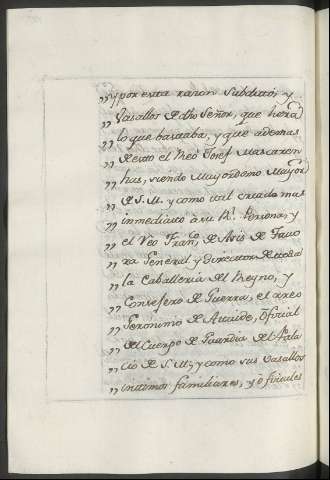 „ y por esta razon Subditos, y
„ Vasallos de dho Señor, que hera
„ lo que bastaba, y que ademas
„ de esto el Reo Josef Mascaren
„ has, siendo Mayordomo Mayor
„ de S. M. y como tal criado mas
„ inmediato à su Rl. Persona, y
„ el Reo Franco. de Asis de Tavo
„ ra General y director de toda
„ la Caballeria del Reyno, y
„ Consejero de Guerra, el areo
„ Geronimo de Ataide, Oficial
„ del Cuerpo de Guardia del Pala
„ cio de S. M. y como sus Vasallos
„ intimos familiares, y oficiales